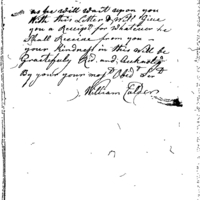 as he will wait upon you
With this Letter & Will Give
you a Receipt for whatever he
Shall Receive from you —
your Kindness in this will be
Gratefuly and
By your your most Obedt Sert
William